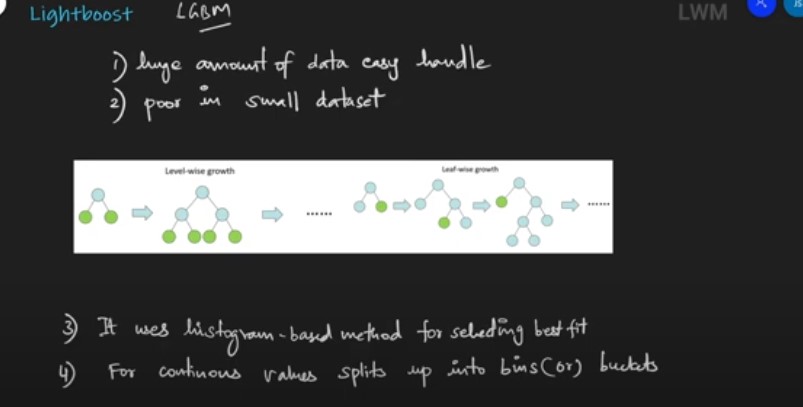 Lightboost LGBM
LWM
JS
1) huge amount of data easy handle
2) poor in small dataset
Level-wise growth
Leaf-wise growth
......
......
3) It uses histogram-based method for selecting best fit
4) For continous values splits up into bins (or) buckets